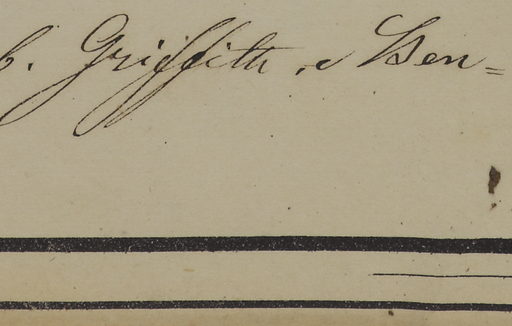 b. Griffith, & Ben=